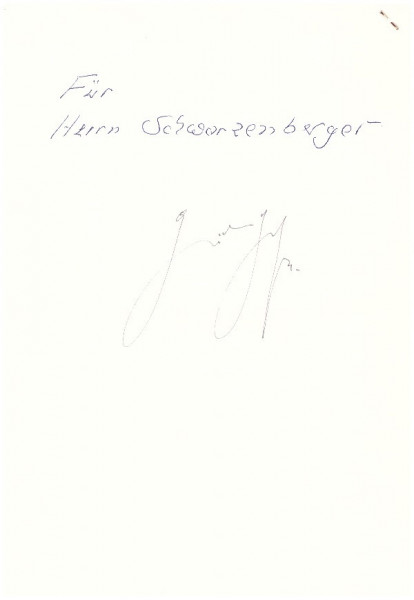 Für
Herrn Schwarzenberger